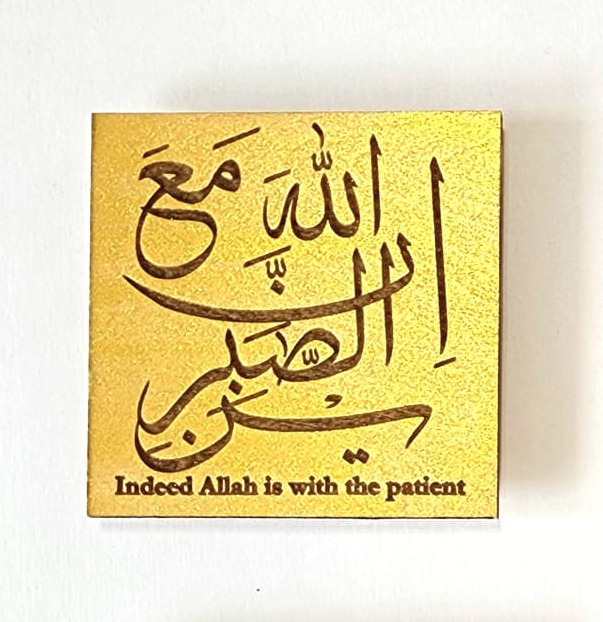 إِنَّ اللّٰهَ مَعَ الصَّبِرِيْنَ
Indeed Allah is with the patient